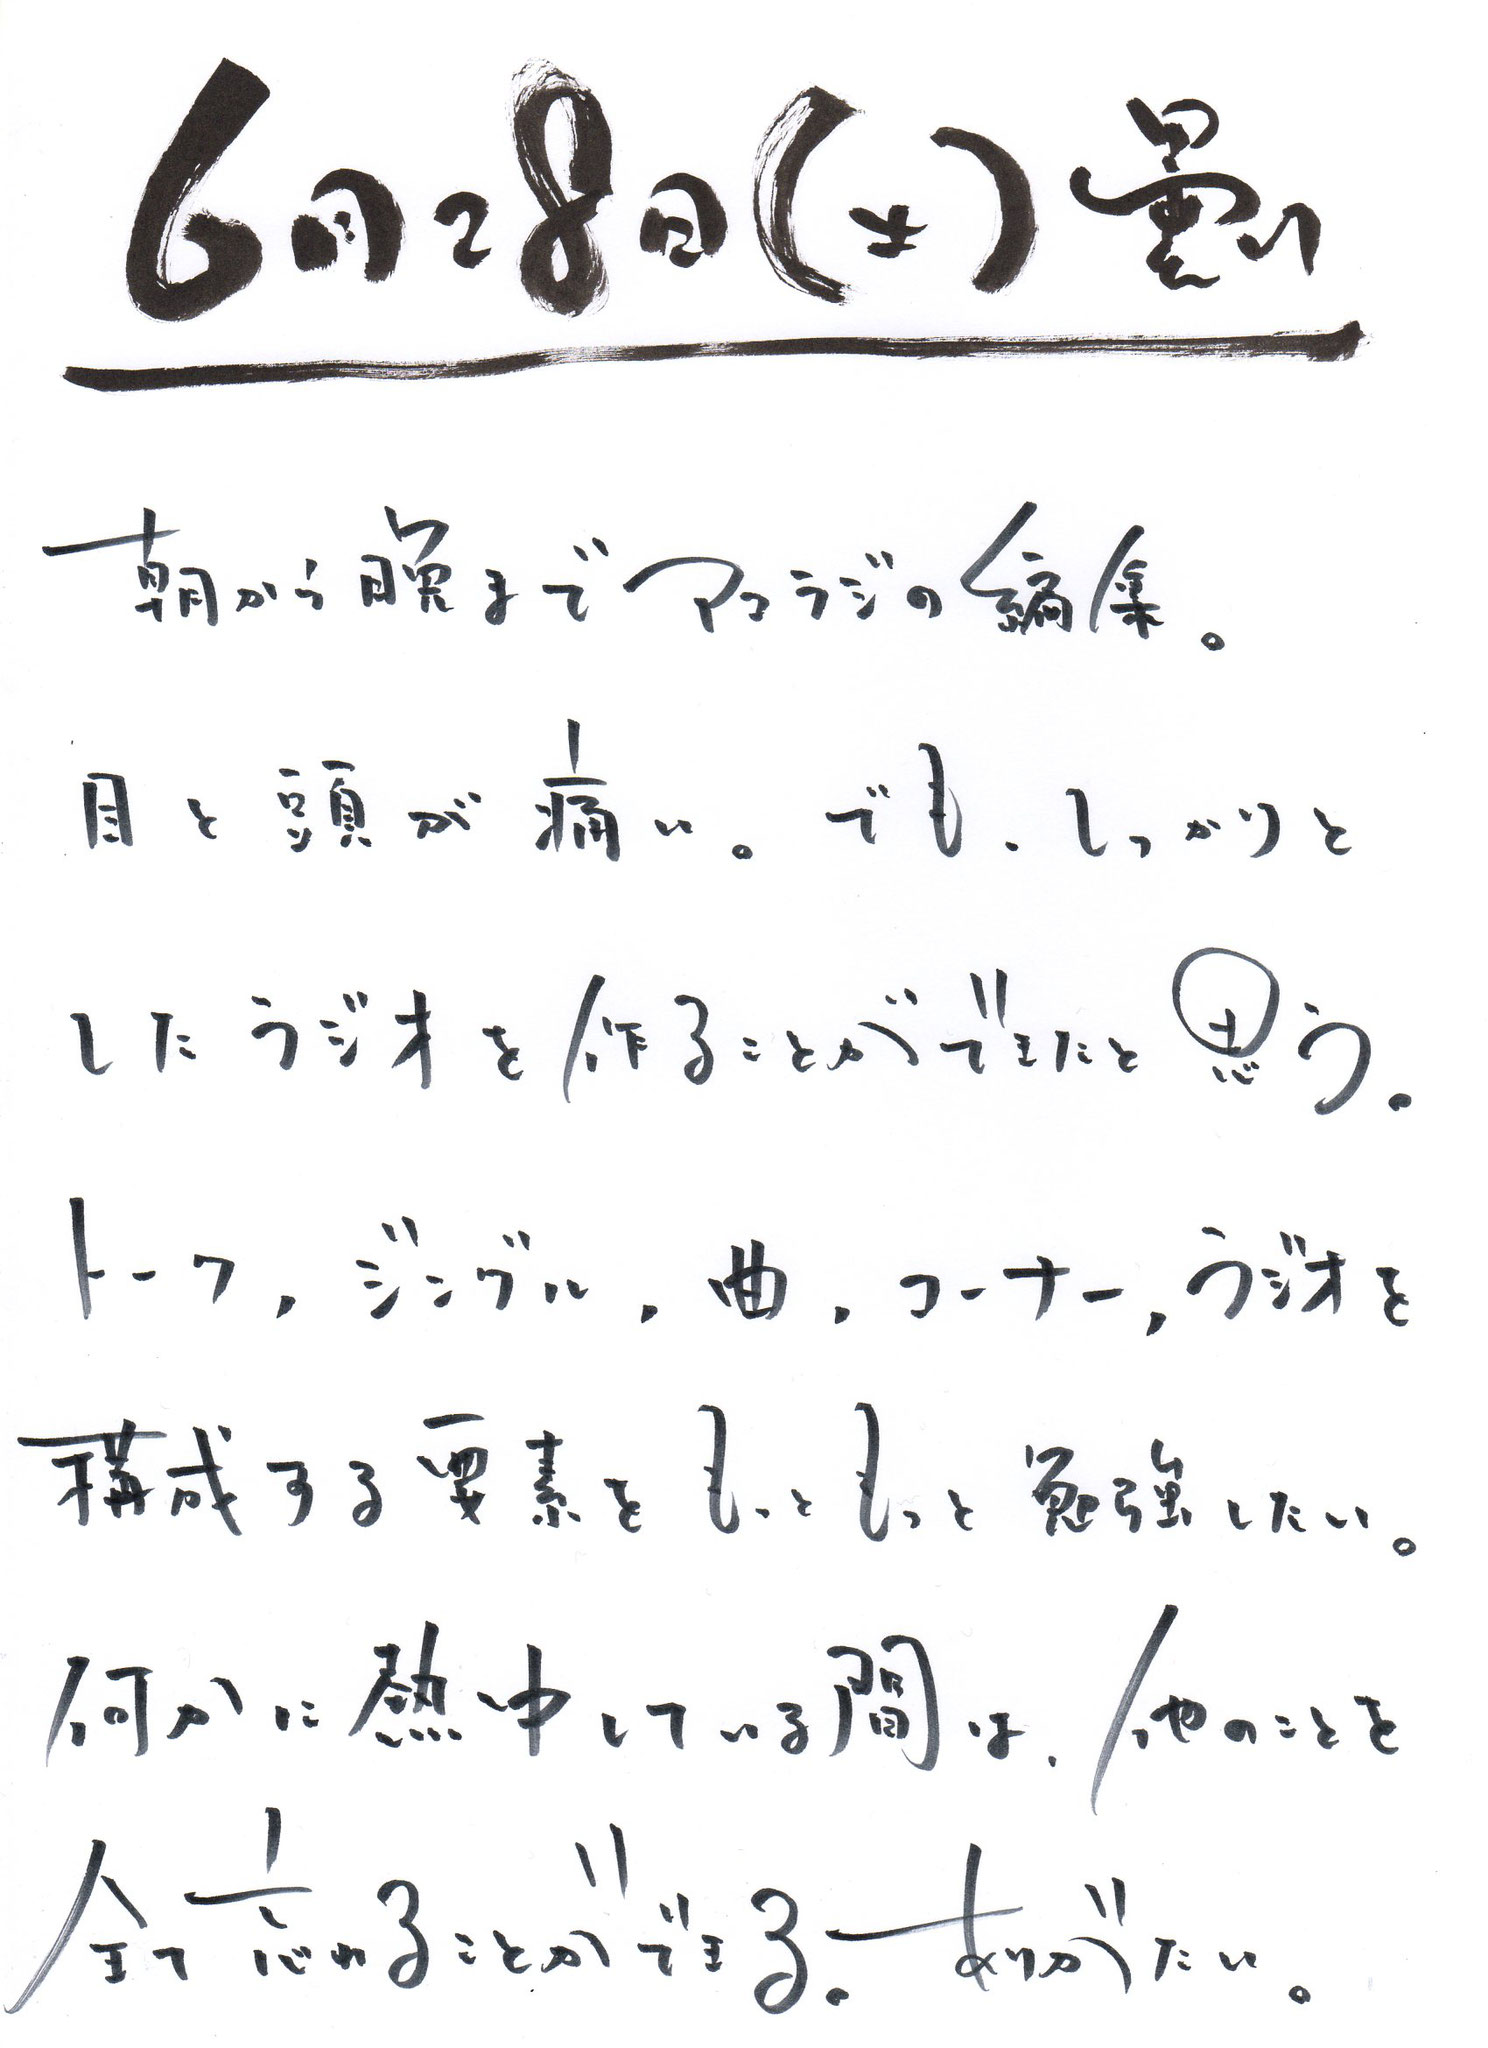 6月28日(土)曇い
朝から晩までアコラジの編集。
目と頭が痛い。でも、しっかりと
したラジオを作ることができたと思う。
トーク，ジングル，曲，コーナー，ラジオを
構成する要素をもっともっと勉強したい。
何かに熱中している間は、他のことを
全て忘れることができる。ありがたい。